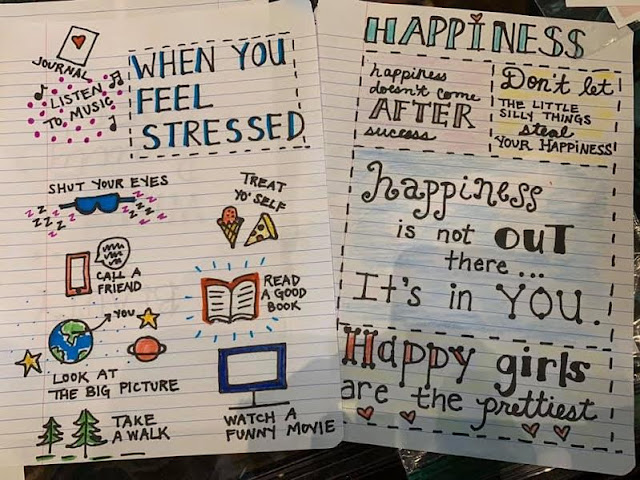 JOURNAL
LISTEN
TO MUSIC
WHEN YOU
FEEL
STRESSED
SHUT YOUR EYES
zzzz zzzz
TREAT
YO' SELF
CALL A
FRIEND
READ
A GOOD
BOOK
YOU
LOOK AT
THE BIG PICTURE
TAKE
A WALK
WATCH A
FUNNY MOVIE
HAPPINESS
happiness
doesn't come
AFTER
success
Don't let
THE LITTLE
SILLY THINGS
steal
YOUR HAPPINESS
happiness
is not OUT
there...
It's in YOU.
Happy girls
are the prettiest